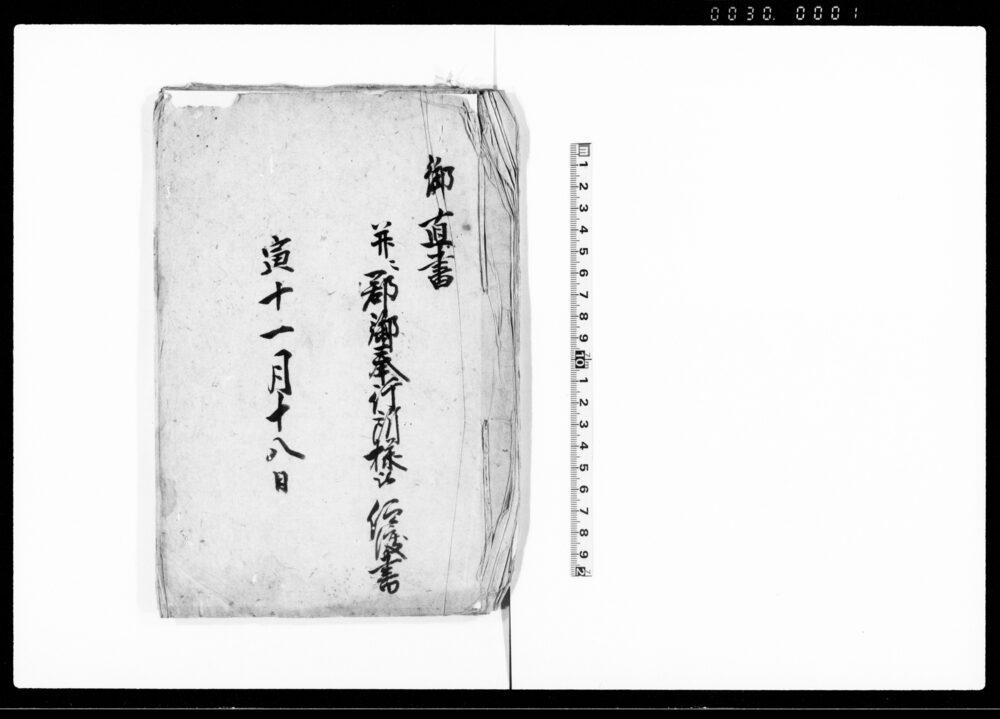 御直書
并ニ郡御奉行所様江被仰渡書
寅十一月十八日
0030. 0001
1 2 3 4 5 6 7 8 9 10 1 2 3 4 5 6 7 8 9 2